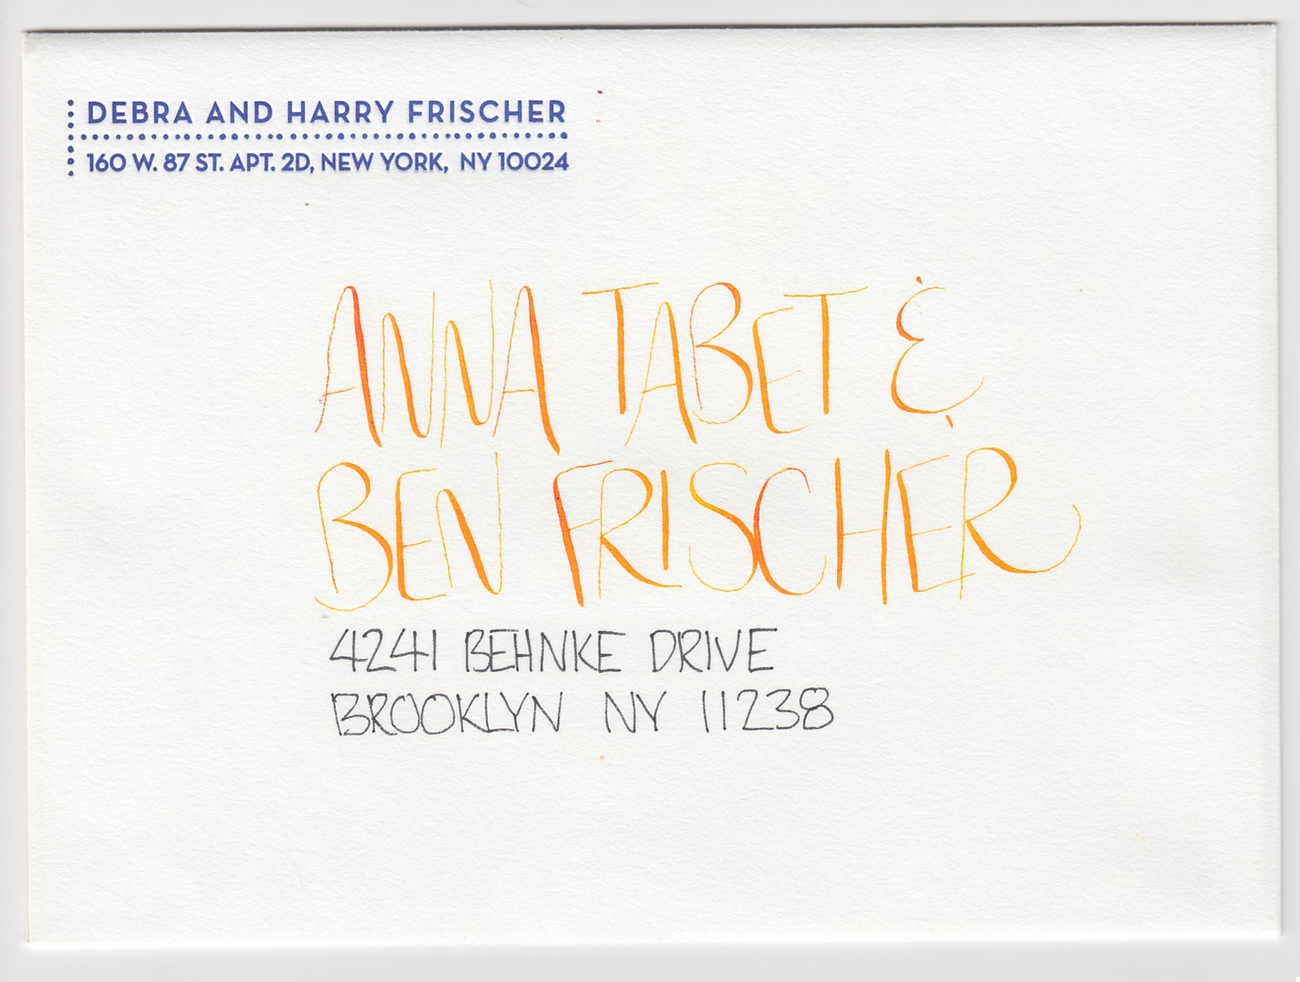 DEBRA AND HARRY FRISCHER
160 W. 87 ST. APT. 2D, NEW YORK, NY 10024
ANNA TABET &
BEN FRISCHER
4241 BEHNKE DRIVE
BROOKLYN NY 11238